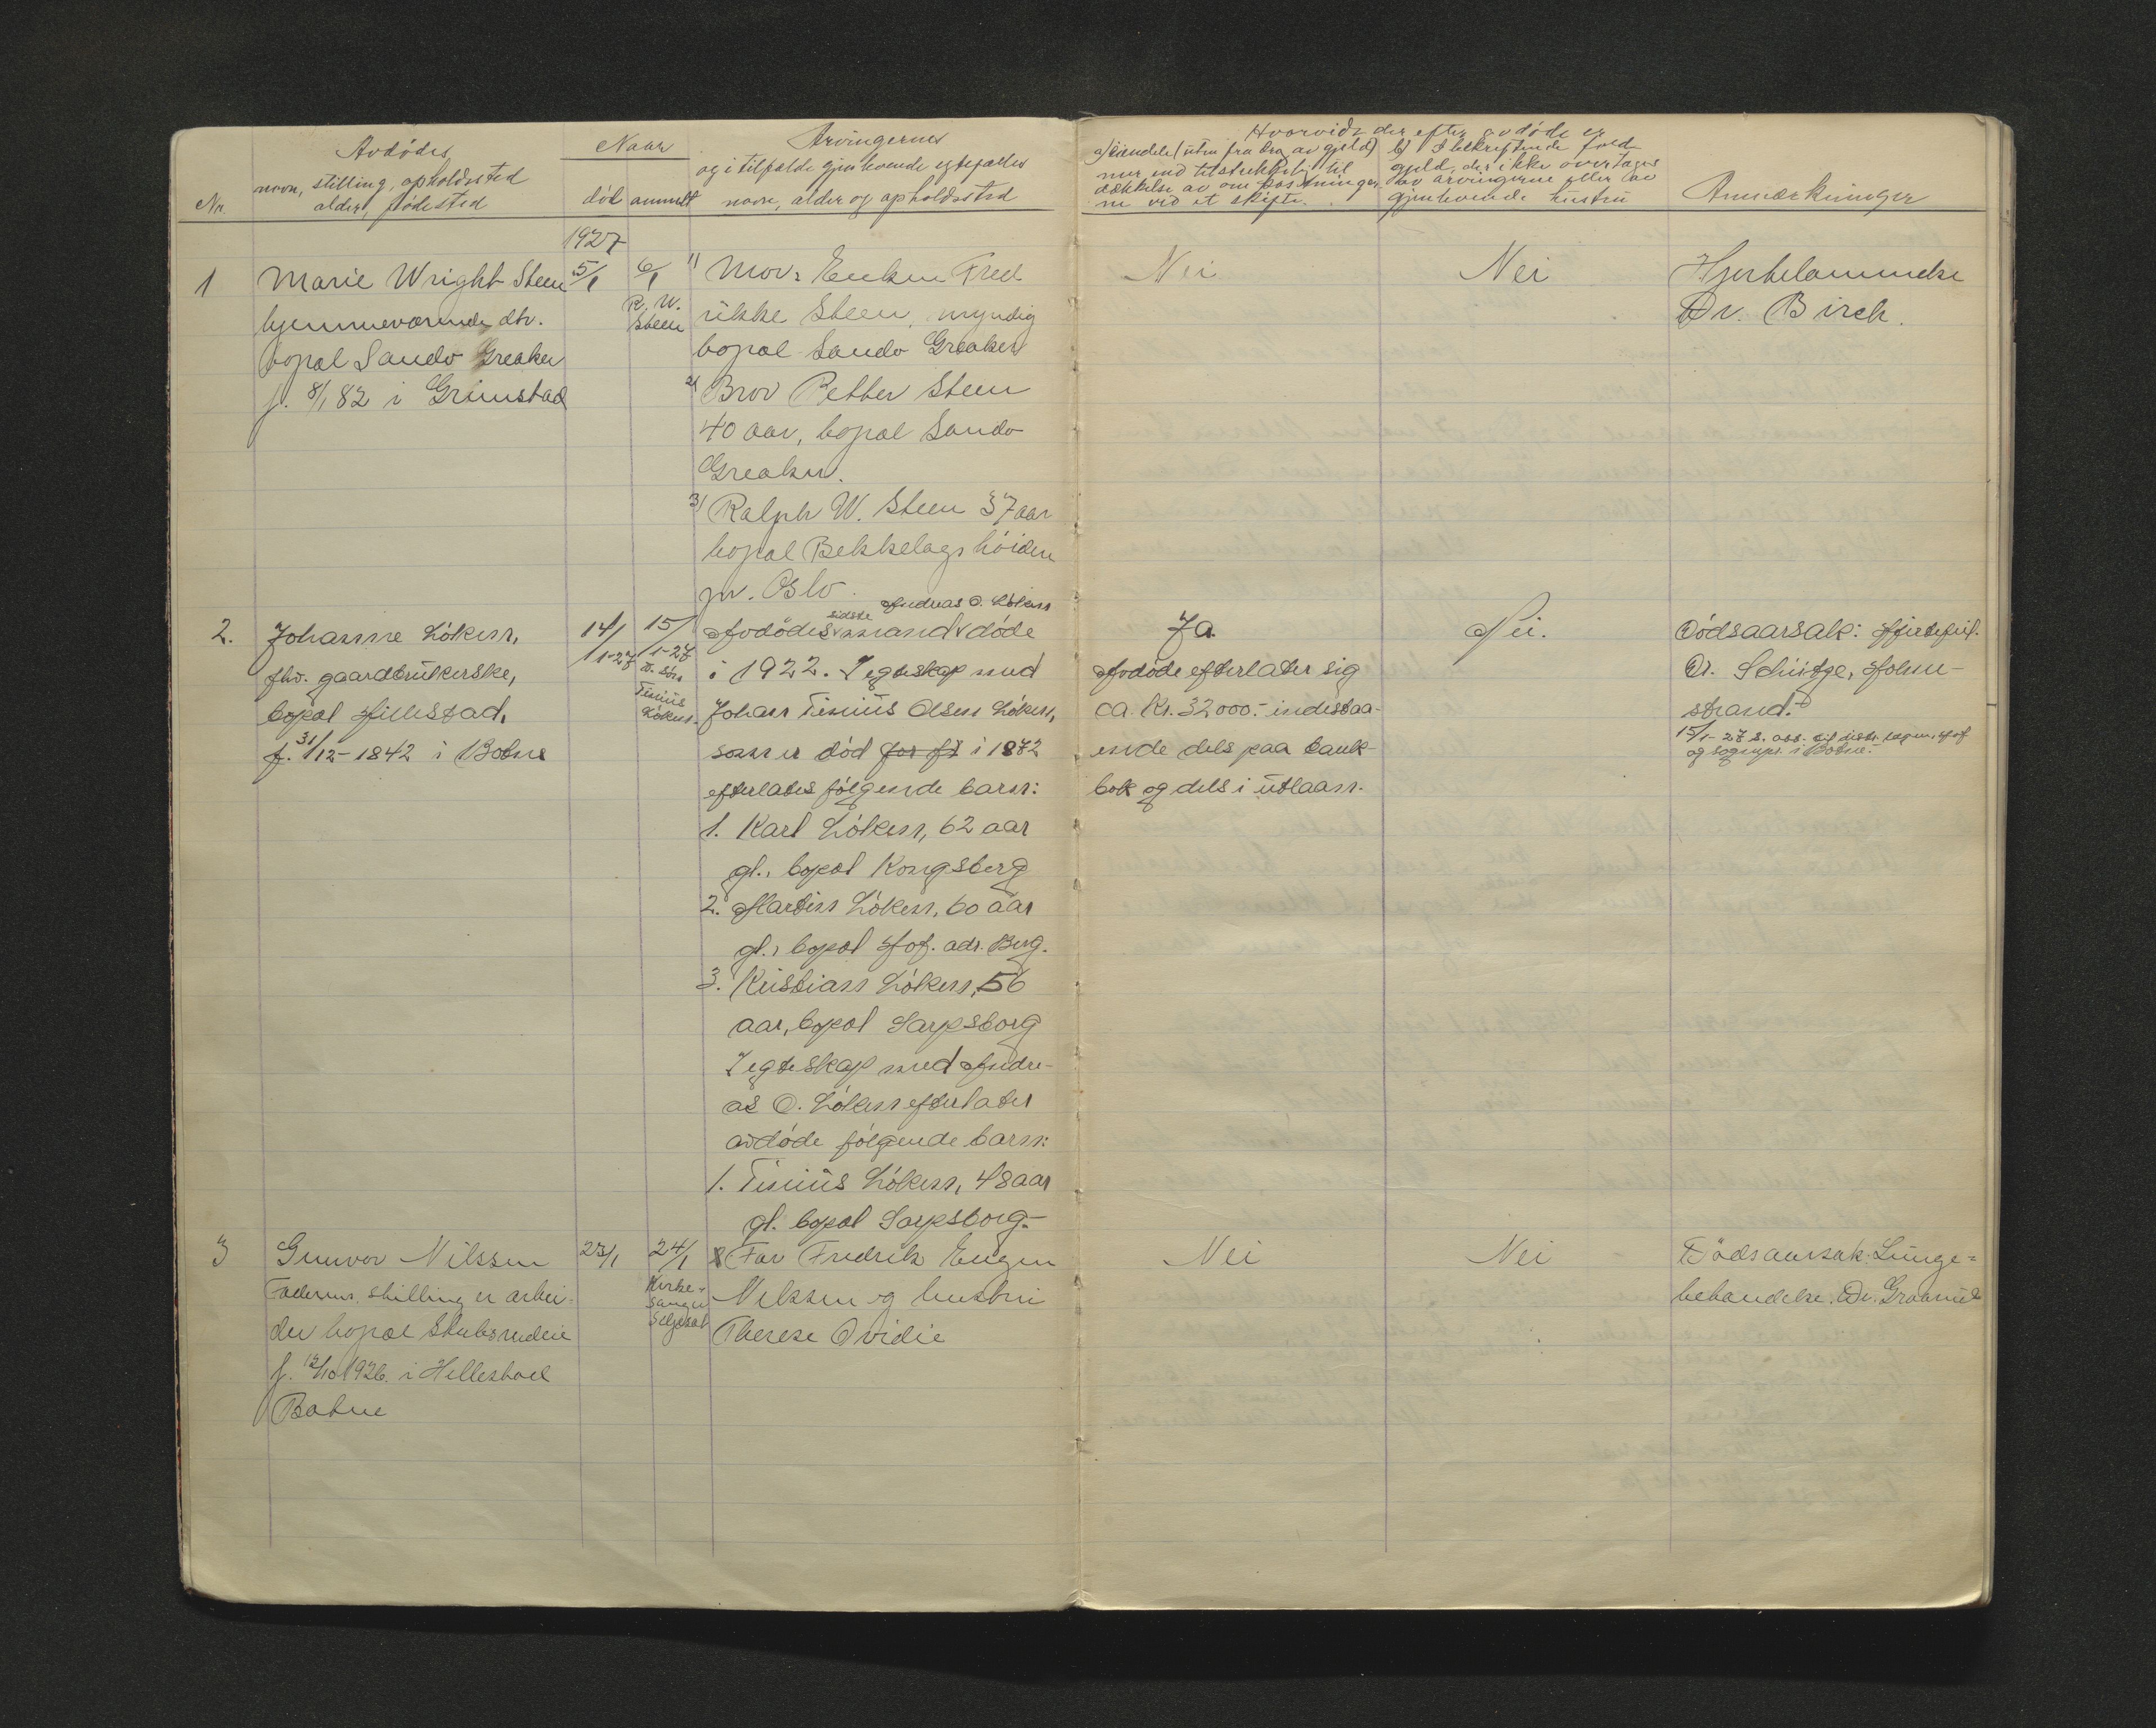 Avdødes
navn, stilling, opholdssted
alder, fødested
Nr.
Naar
død anmeldt
Arvingernes
og i tilfælde gjenlevende egtefælles
navn, alder og opholdssted
Hvorvidt der efter avdøde er
a) Eiendele (uten fradrag av gjeld)
mer end tilstrekkelig til
dækkelse av omkostninger
ne ved et skifte.
b) Ibeskrivende
gjeld, der ikke overtages
av arvingerne eller av
gjenlevende hustru
Anmærkninger
1927
1
Marie Wright Steen
hjemmeværende dtr.
bopæl Sando Greaker
f. 8/1 82 i Grimstad
5/1
6/1
R. W.
Steen
1) Mor: Enken Fred
rikke Steen, myndig
bopæl Sando Greaker
2) Bror Petter Steen
40 aar, bopæl Sando
Greaker.
3) Ralph W. Steen 37 aar
bopæl Bekkelagshöiden
pr. Oslo.
Nei
Nei
Hjertelammelse
Dr. Birch.
2.
Johanne Löken,
fhv. gaardbrukerske,
bopæl Hillestad,
f. 31/12-1842 i Botne
14/1-27
15/1-27
av sön
Tinius
Löken.
Avdödes sidste mand Andreas O. Löken döde
i 1922. I egteskap med
Johan Tinius Olsen Löken,
som er död for ft i 1872
efterlates fölgende barn:
1. Karl Löken, 62 aar
gl., bopæl Kongsberg
2. Martin Löken, 60 aar
gl., bopæl Hof. adr. Berg.
3. Kristian Löken, 56
aar, bopæl Sarpsborg
I egteskap med Andre-
as O. Löken efterlater
avdöde fölgende barn:
1. Tinius Löken, 48 aar
gl. bopæl Sarpsborg.-
Ja
Avdöde efterlater sig
ca. Kr. 32000.- indestaa-
ende dels paa bank-
bok og dels i utlaan.
Nei.
Dödsaarsak: Hjertefeil.
Dr. Schützge, Holme-
strand.-
15/1-27 s. att. til distr. lægen, Hof
og sognepr. i Botne.-
3
Gunvor Nilssen
Faderens stilling er arbei-
der bopæl Stubsrudeie
f. 12/10 1926. i Hillestad
Botne
23/1
24/1
Kirke-
sanger
Seljesæt
Far Fredrik Eugen
Nilssen og hustru
Therese Ovidie
Nei
Nei
Dödsaarsak: Lunge-
behandelse. Dr. Graarud